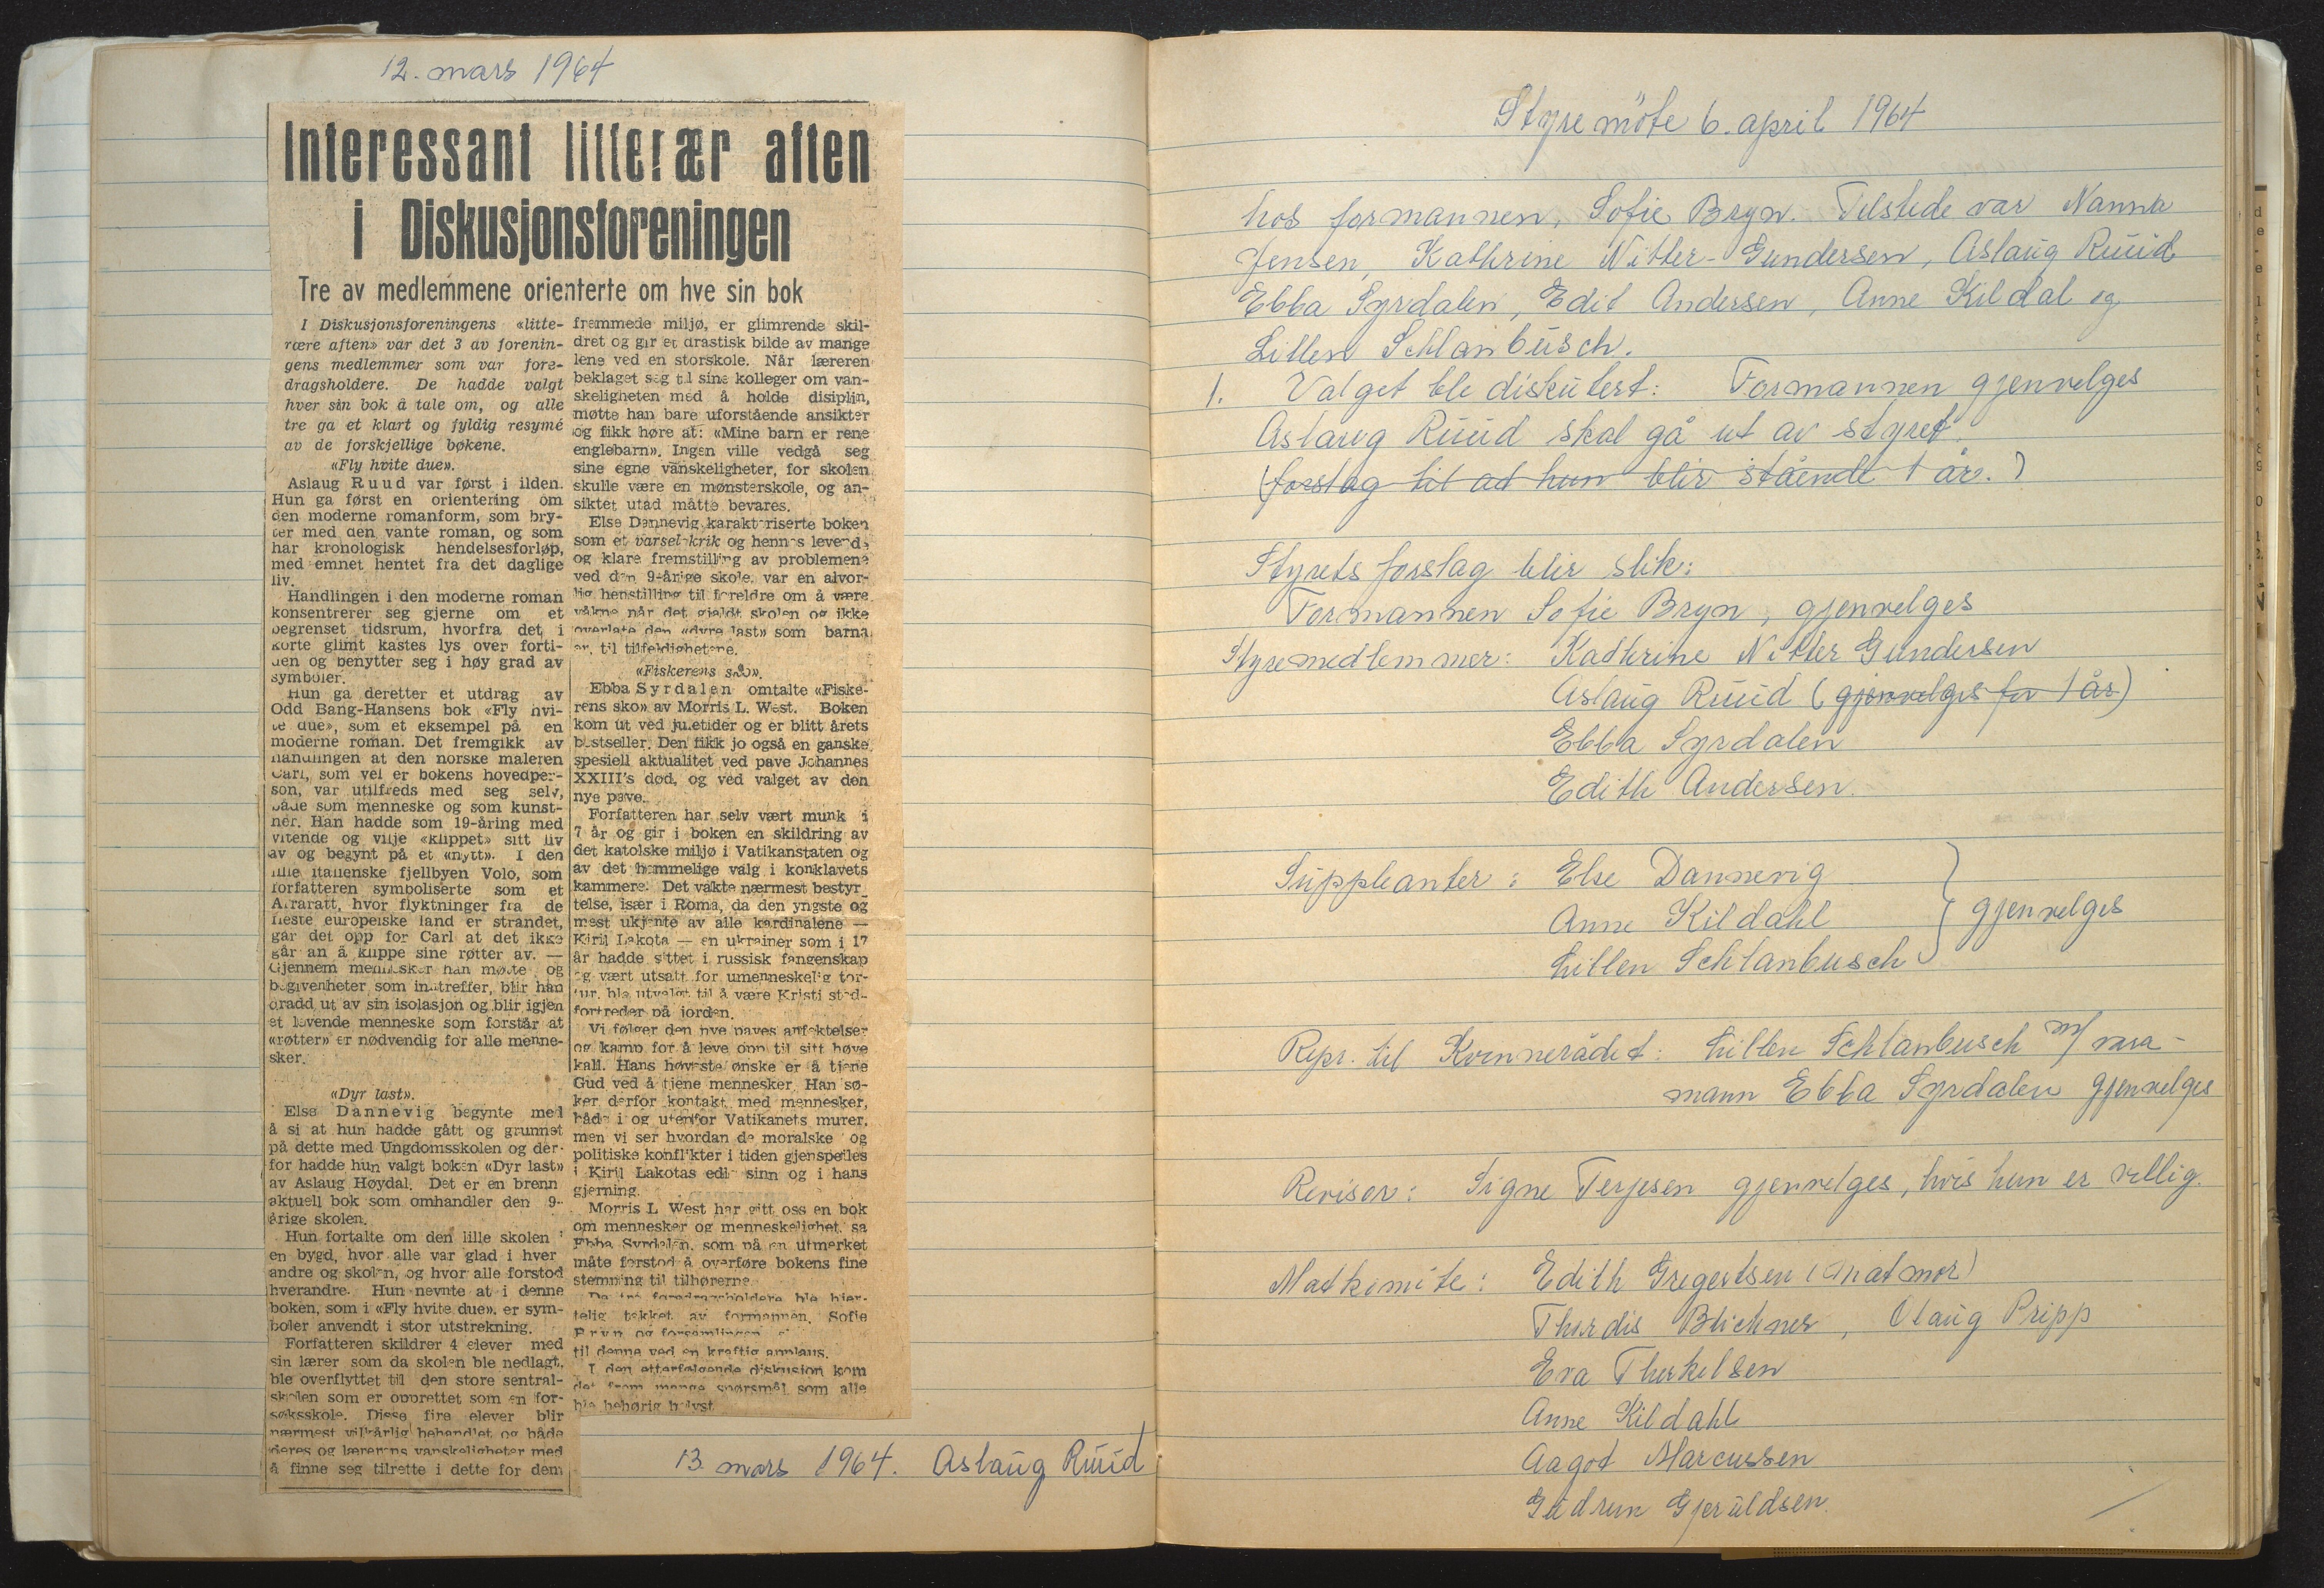 12. mars 1964
Interessant litterær aften
i Diskusjonsforeningen
Tre av medlemmene orienterte om hve sin bok
I Diskusjonsforeningens «litte-
rære aften» var det 3 av forenin-
gens medlemmer som var fore-
dragsholdere. De hadde valgt
hver sin bok å tale om, og alle
tre ga et klart og fyldig resymé
av de forskjellige bøkene.
«Fly hvite due».
Aslaug Ruud var først i ilden.
Hun ga først en orientering om
den moderne romanform, som bry-
ter med den vante roman, og som
har kronologisk hendelsesforløp,
med emnet hentet fra det daglige
liv.
Handlingen i den moderne roman
konsentrerer seg gjerne om et
begrenset tidsrum, hvorfra det i
korte glimt kastes lys over forti-
den og benytter seg i høy grad av
symboler.
Hun ga deretter et utdrag av
Odd Bang-Hansens bok «Fly hvi-
te due», som et eksempel på en
moderne roman. Det fremgikk av
handlingen at den norske maleren
Carl, som vel er bokens hovedper-
son, var utilfreds med seg selv,
både som menneske og som kunst-
ner. Han hadde som 19-åring med
vitende og vilje «klippet» sitt liv
av og begynt på et «nytt». I den
lille italienske fjellbyen Volo, som
forfatteren symboliserte som et
Ararat​t, hvor flyktninger fra de
fleste europeiske land er strandet,
går det opp for Carl at det ikke
går an å klippe sine røtter av. —
Gjennem mennesker han møtte og
begivenheter som inntreffer, blir han
dradd ut av sin isolasjon og blir igjen
et levende menneske som forstår at
«røtter» er nødvendig for alle menne-
sker.
«Dyr last».
Else Dannevig begynte med
å si at hun hadde gått og grunnet
på dette med Ungdomsskolen og der-
for hadde hun valgt boken «Dyr last»
av Aslaug Høydal. Det er en brenn
aktuell bok som omhandler den 9-
årige skolen.
Hun fortalte om den lille skolen i
en bygd, hvor alle var glad i hver
andre og skolen, og hvor alle forstod
hverandre. Hun nevnte at i denne
boken, som i «Fly hvite due», er sym-
boler anvendt i stor utstrekning.
Forfatteren skildrer 4 elever med
sin lærer som da skolen ble nedlagt,
ble overflyttet til den store sentral-
skolen som er opprettet som en for-
søksskole. Disse fire elever blir
nærmest vilkårlig behandlet og både
deres og lærerens vanskeligheter med
å finne seg tilrette i dette for dem
fremmede miljø, er glimrende skil-
dret og gir et drastisk bilde av mange
lene ved en storskole. Når læreren
beklaget seg til sine kolleger om van-
skeligheten med å holde disiplin,
møtte han bare uforstående ansikter
og fikk høre at: «Mine barn er rene
englebarn». Ingen ville vedgå seg
sine egne vanskeligheter, for skolen
skulle være en mønsterskole, og an-
siktet utad måtte bevares.
Else Dannevig karakteriserte boken
som et varselskrik og hennes levende
og klare fremstilling av problemene
ved den 9-årige skole, var en alvor-
lig henstilling til foreldre om å være
våkne når det gjeldt skolen og ikke
overlate den «dyre last» som barna
er, til tilfeldighetene.
«Fiskerens sko».
Ebba Syrdalen omtalte «Fiske-
rens sko» av Morris L. West. Boken
kom ut ved juletider og er blitt årets
bestseller. Den fikk jo også en ganske
spesiell aktualitet ved pave Johannes
XXIII's død, og ved valget av den
nye pave.
Forfatteren har selv vært munk i
7 år og gir i boken en skildring av
det katolske miljø i Vatikanstaten og
av det hemmelige valg i konklavets
kammere. Det vakte nærmest bestyr
telse, især i Roma, da den yngste og
mest ukjente av alle kardinalene —
Kiril Lakota — en ukrainer som i 17
år hadde sittet i russisk fangenskap
og vært utsatt for umenneskelig tor-
tur, ble utvalgt til å være Kristi sted-
fortreder på jorden.
Vi følger den nye paves anfektelser
og kamp for å leve opp til sitt høye
kall. Hans høyeste ønske er å tjene
Gud ved å tjene mennesker. Han sø-
ker derfor kontakt med mennesker,
både i og utenfor Vatikanets murer,
men vi ser hvordan de moralske og
politiske konflikter i tiden gjenspeiles
i Kiril Lakotas edle sinn og i hans
gjerning.
Morris L West har gitt oss en bok
om mennesker og menneskelighet, sa
Ebba Syrdalen, som på en utmerket
måte forstod å overføre bokens fine
stemning til tilhørerne.
De tre foredragsholdere ble hjer-
telig takket av formannen, Sofie
Bryn og forsamlingen
til denne ved en kraftig applaus.
I den etterfølgende diskusjon kom
det frem mange spørsmål som alle
ble behørig belyst.
13. mars 1964. Aslaug Ruud
Styremöte 6. april 1964
hos formannen, Sofie Bryn. Tilstede var Nanna
Jensen, Kathrine Nitter-Gundersen, Aslaug Ruud
Ebba Syrdalen, Edit Andersen, Anne Kildal og
Lillen Schlanbusch.
1. Valget ble diskutert: Formannen gjenvelges
Aslaug Ruud skal gå ut av styret.
(forslag til at hun blir stående 1 år.)
Styrets forslag blir slik:
Formannen Sofie Bryn, gjenvelges
Styremedlemmer: Kathrine Nitter Gundersen
Aslaug Ruud (gjenvelges for 1 år)
Ebba Syrdalen
Edith Andersen.
Suppleanter: Else Dannevig
Anne Kildahl } gjenvelges
Lillen Schlanbusch
Repr. til Kvinnerådet: Lillen Schlanbusch m/ vara-
mann Ebba Syrdalen gjenvelges
Revisor: Signe Terjesen gjenvelges, hvis hun er villig.
Matkomite: Edith Gregertsen (matmor)
Thordis Blichner, Olaug Pripp
Eva Therkelsen
Anne Kildahl
Aagot Marcussen
Gudrun Gjeruldsen.